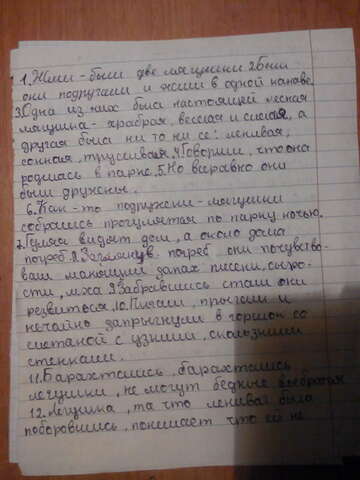 1. Жили-были две лягушки. 2. Были
они подругами и жили в одной канаве.
3. Одна из них была настоящей лесная
лягушка - храбрая, веслая и сильная, а
другая была ни то ни сё: ленивая,
сонная, трусивая. 4. Говорили, что она
родилась в парке. 5. Но всё равно они
были дружены.
6. Как-то подружки-лягушки
собрались прогуляться по парку ночью.
7. Гуляя видят дом, а около дома
погреб. 8. в погреб они почувство-
вали манющий запах плесни, сыро-
сти, мха. 9. Забравшись стали они
резвиться. 10. Плясали, прыгали и
нечайно запрыгнули в горшок со
сметаной с узкими, скользкими
стенками.
11. Барахтались, барахтались
легушки, не могут бедные выбраться.
12. Легушка, та что ленивая была
поборовшись, понимает что ей не